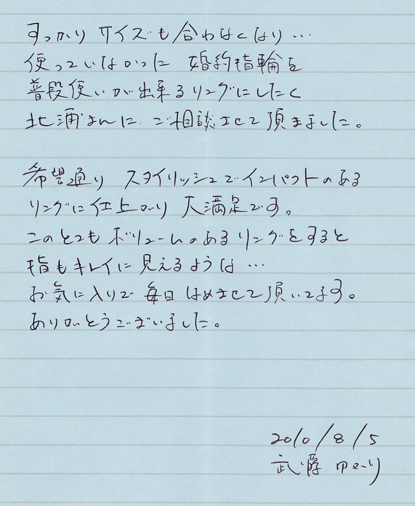 すっかり サイズも合わなくなり…
使っていなかった 婚約指輪を
普段使いが出来るリングにしたく
北浦さんに、ご相談させて頂きました。
希望通り スタイリッシュでインパクトのある
リングに仕上がり 大満足です。
このとてもボリュームのあるリングをすると
指もキレイに見えるような…
お気に入りで 毎日はめさせて頂いてます。
ありがとうございました。
2010/8/5
武